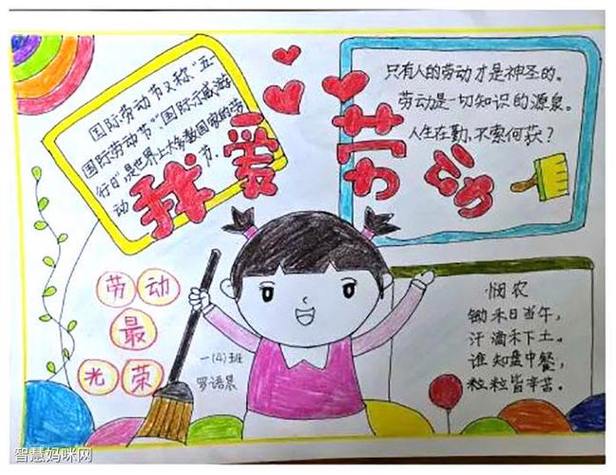 国际劳动节又称"五一
国际劳动节"、"国际示威游
行日",是世界上大多数国家的劳
动节.
我爱劳动
只有人的劳动才是神圣的。
劳动是一切知识的源泉。
人生在勤,不索何获?
劳动
最
光荣
一(4)班
罗语晨
悯农
锄禾日当午,
汗滴禾下土。
谁知盘中餐,
粒粒皆辛苦。
智慧妈咪网